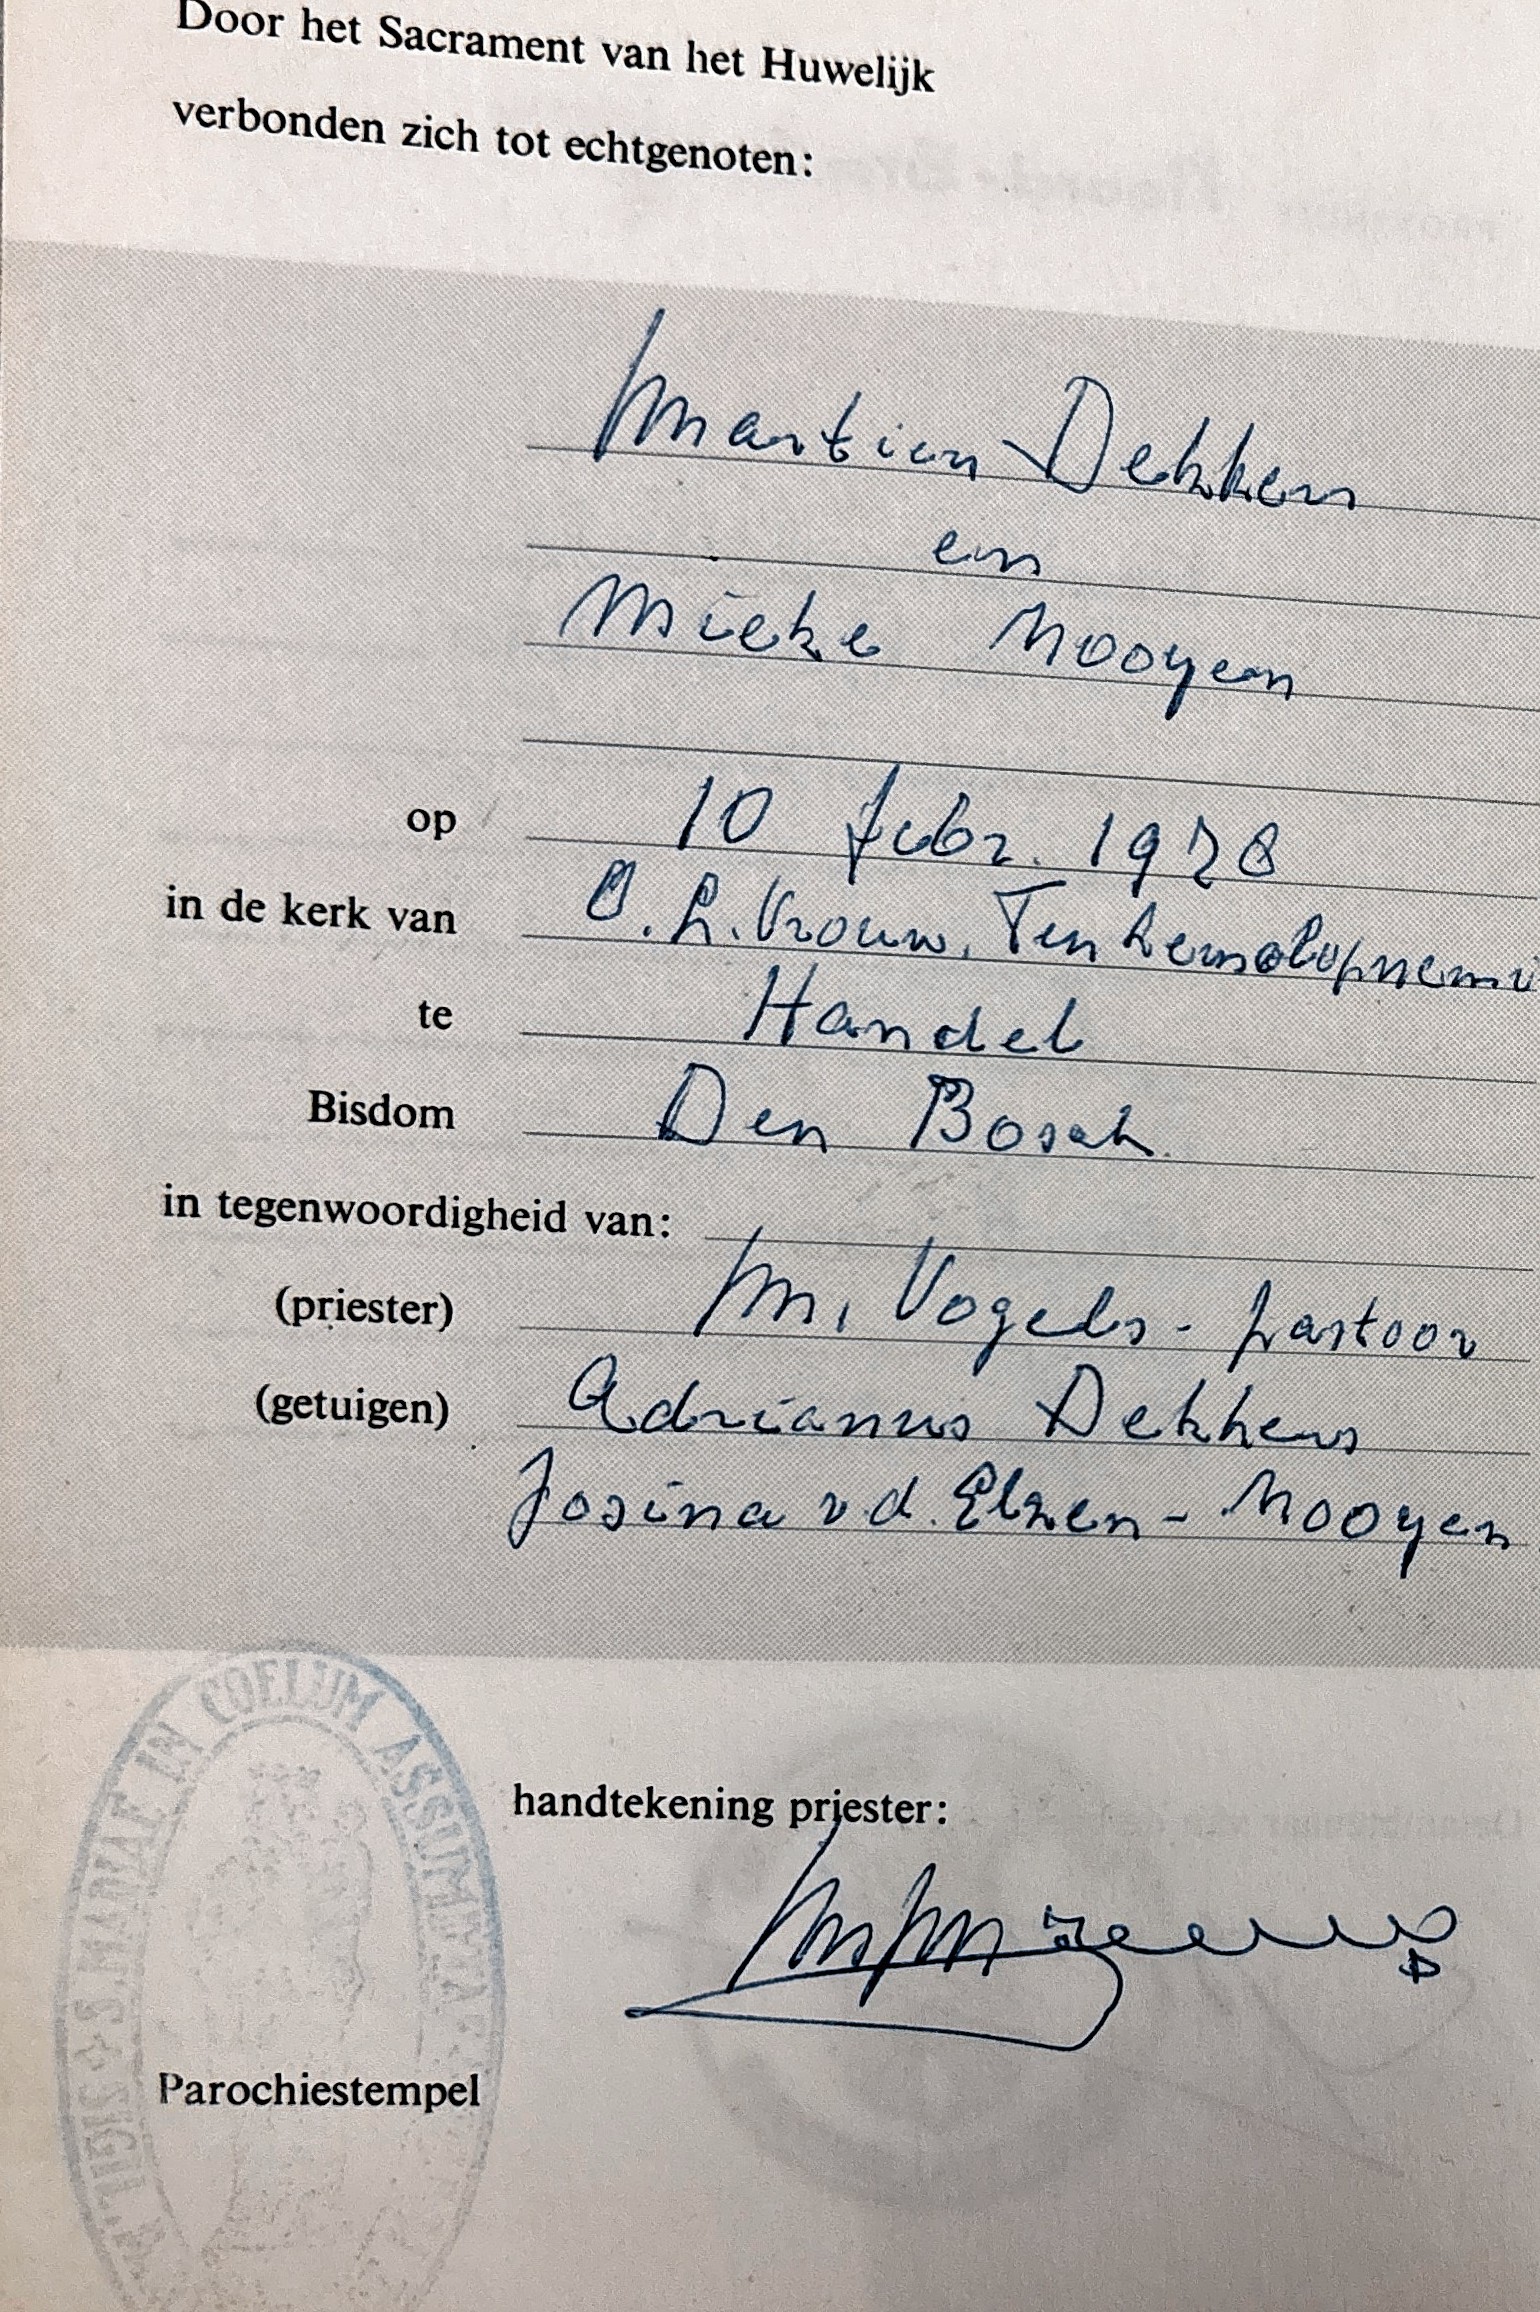 Door het Sacrament van het Huwelijk
verbonden zich tot echtgenoten:
Martien Dekkers
en
Mieke Mooyen
op 10 febr. 1978
in de kerk van O.L.Vrouw. Ten hemelopnemi
te Handel
Bisdom Den Bosch.
in tegenwoordigheid van:
(priester) M. Vogels - pastoor
(getuigen) Adrianus Dekkers
Josina v.d. Elzen - Mooyen
MARIAE IN COELUM ASSUMPTAE
handtekening priester:
Parochiestempel